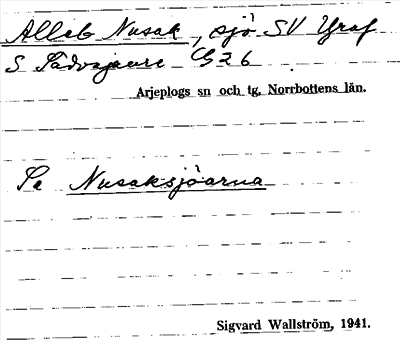 Alleb Nusak, sjö SV Graf
S Sädvajaure G26
Arjeplogs sn och tg, Norrbottens län.
Se Nusaksjöarna
Sigvard Wallström, 1941.